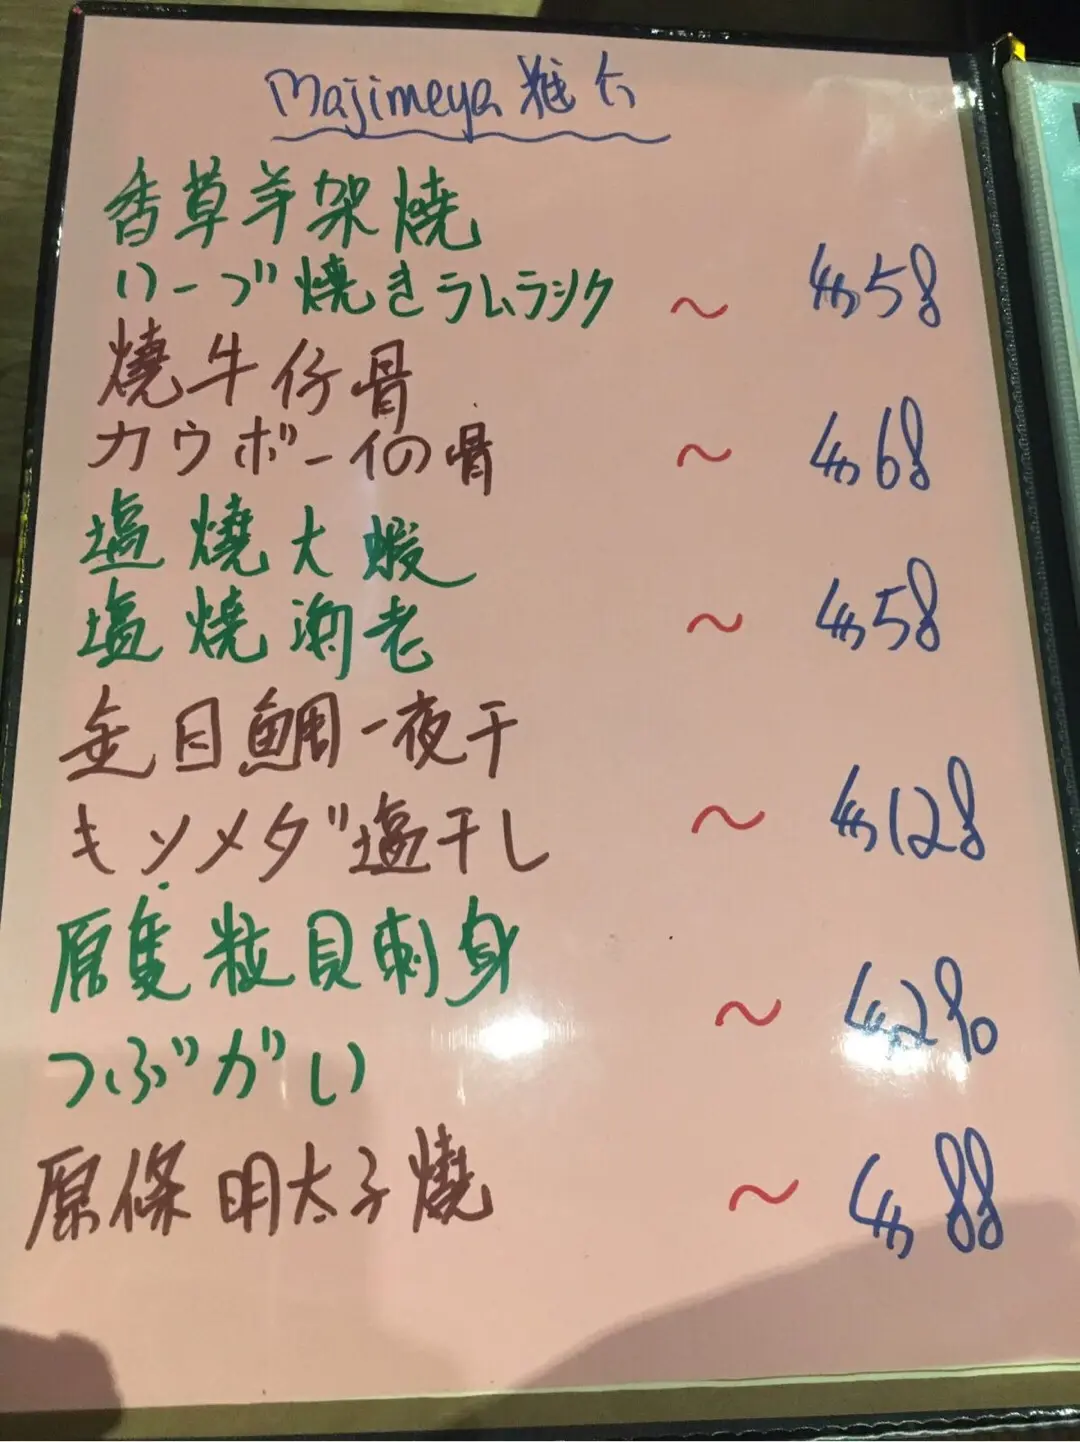 Majimeya 推介
香草羊架燒
ハーブ焼きラムラシク
~ $58
燒牛仔骨
カウボーイの骨
~ $68
塩燒大蝦
塩焼海老
~ $58
金目鯛一夜干
キンメダ塩干し
~ $128
原隻粒貝刺身
つぶがい
~ $290
原條明太子燒
~ $88